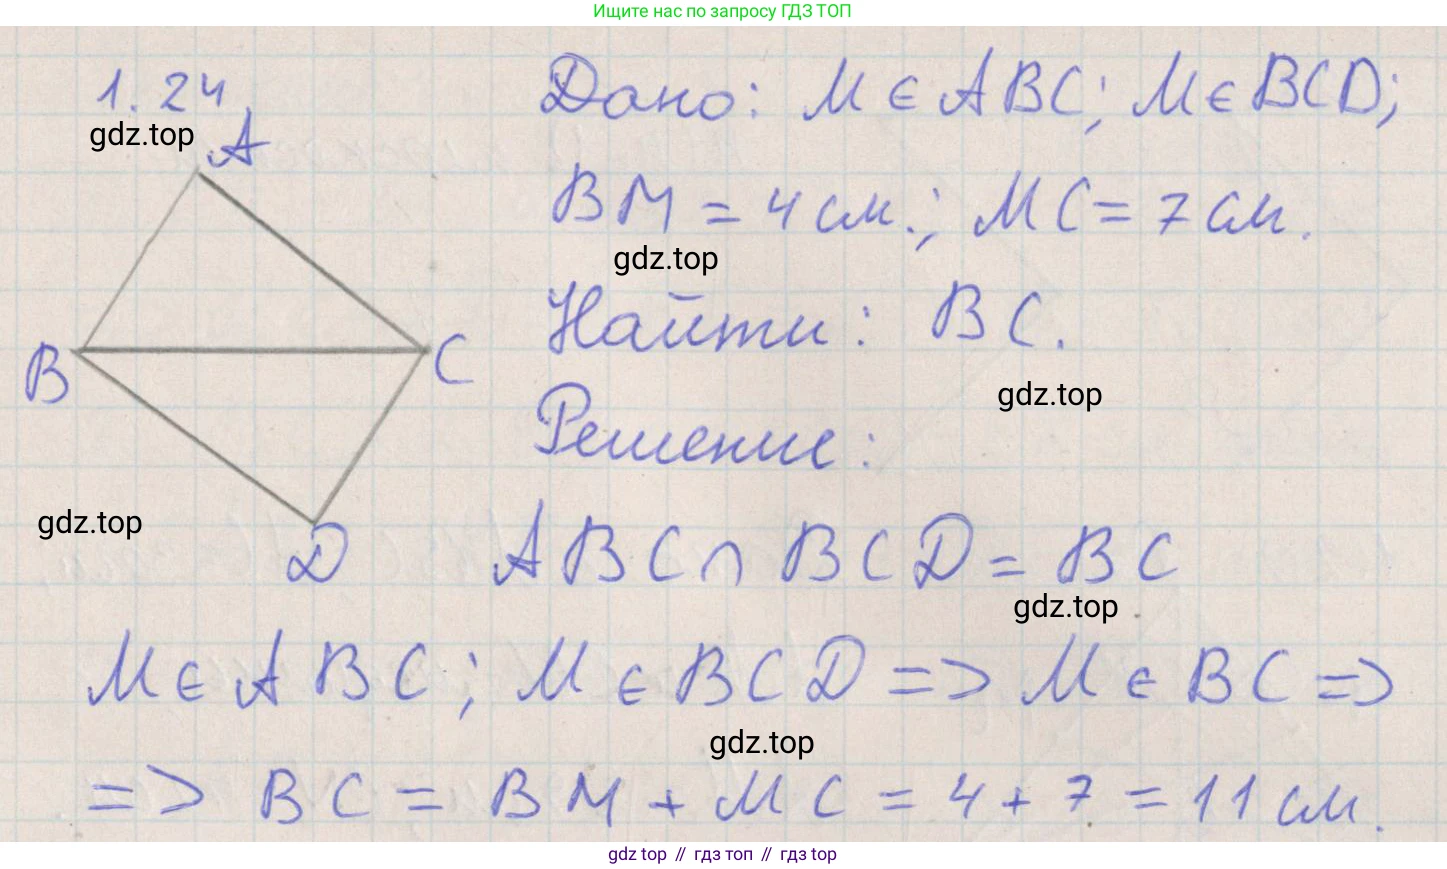 Ищите нас по запросу ГДЗ ТОП
1.24
gdz.top
A
Дано: M ∈ ABC; M ∈ BCD;
BM = 4 см.; MC = 7 см.
gdz.top
Найти: BC.
B
C
gdz.top
Решение:
gdz.top
D
ABC ∩ BCD = BC
gdz.top
M ∈ ABC; M ∈ BCD => M ∈ BC =>
gdz.top
=> BC = BM + MC = 4 + 7 = 11 см.
gdz top // гдз топ // гдз top